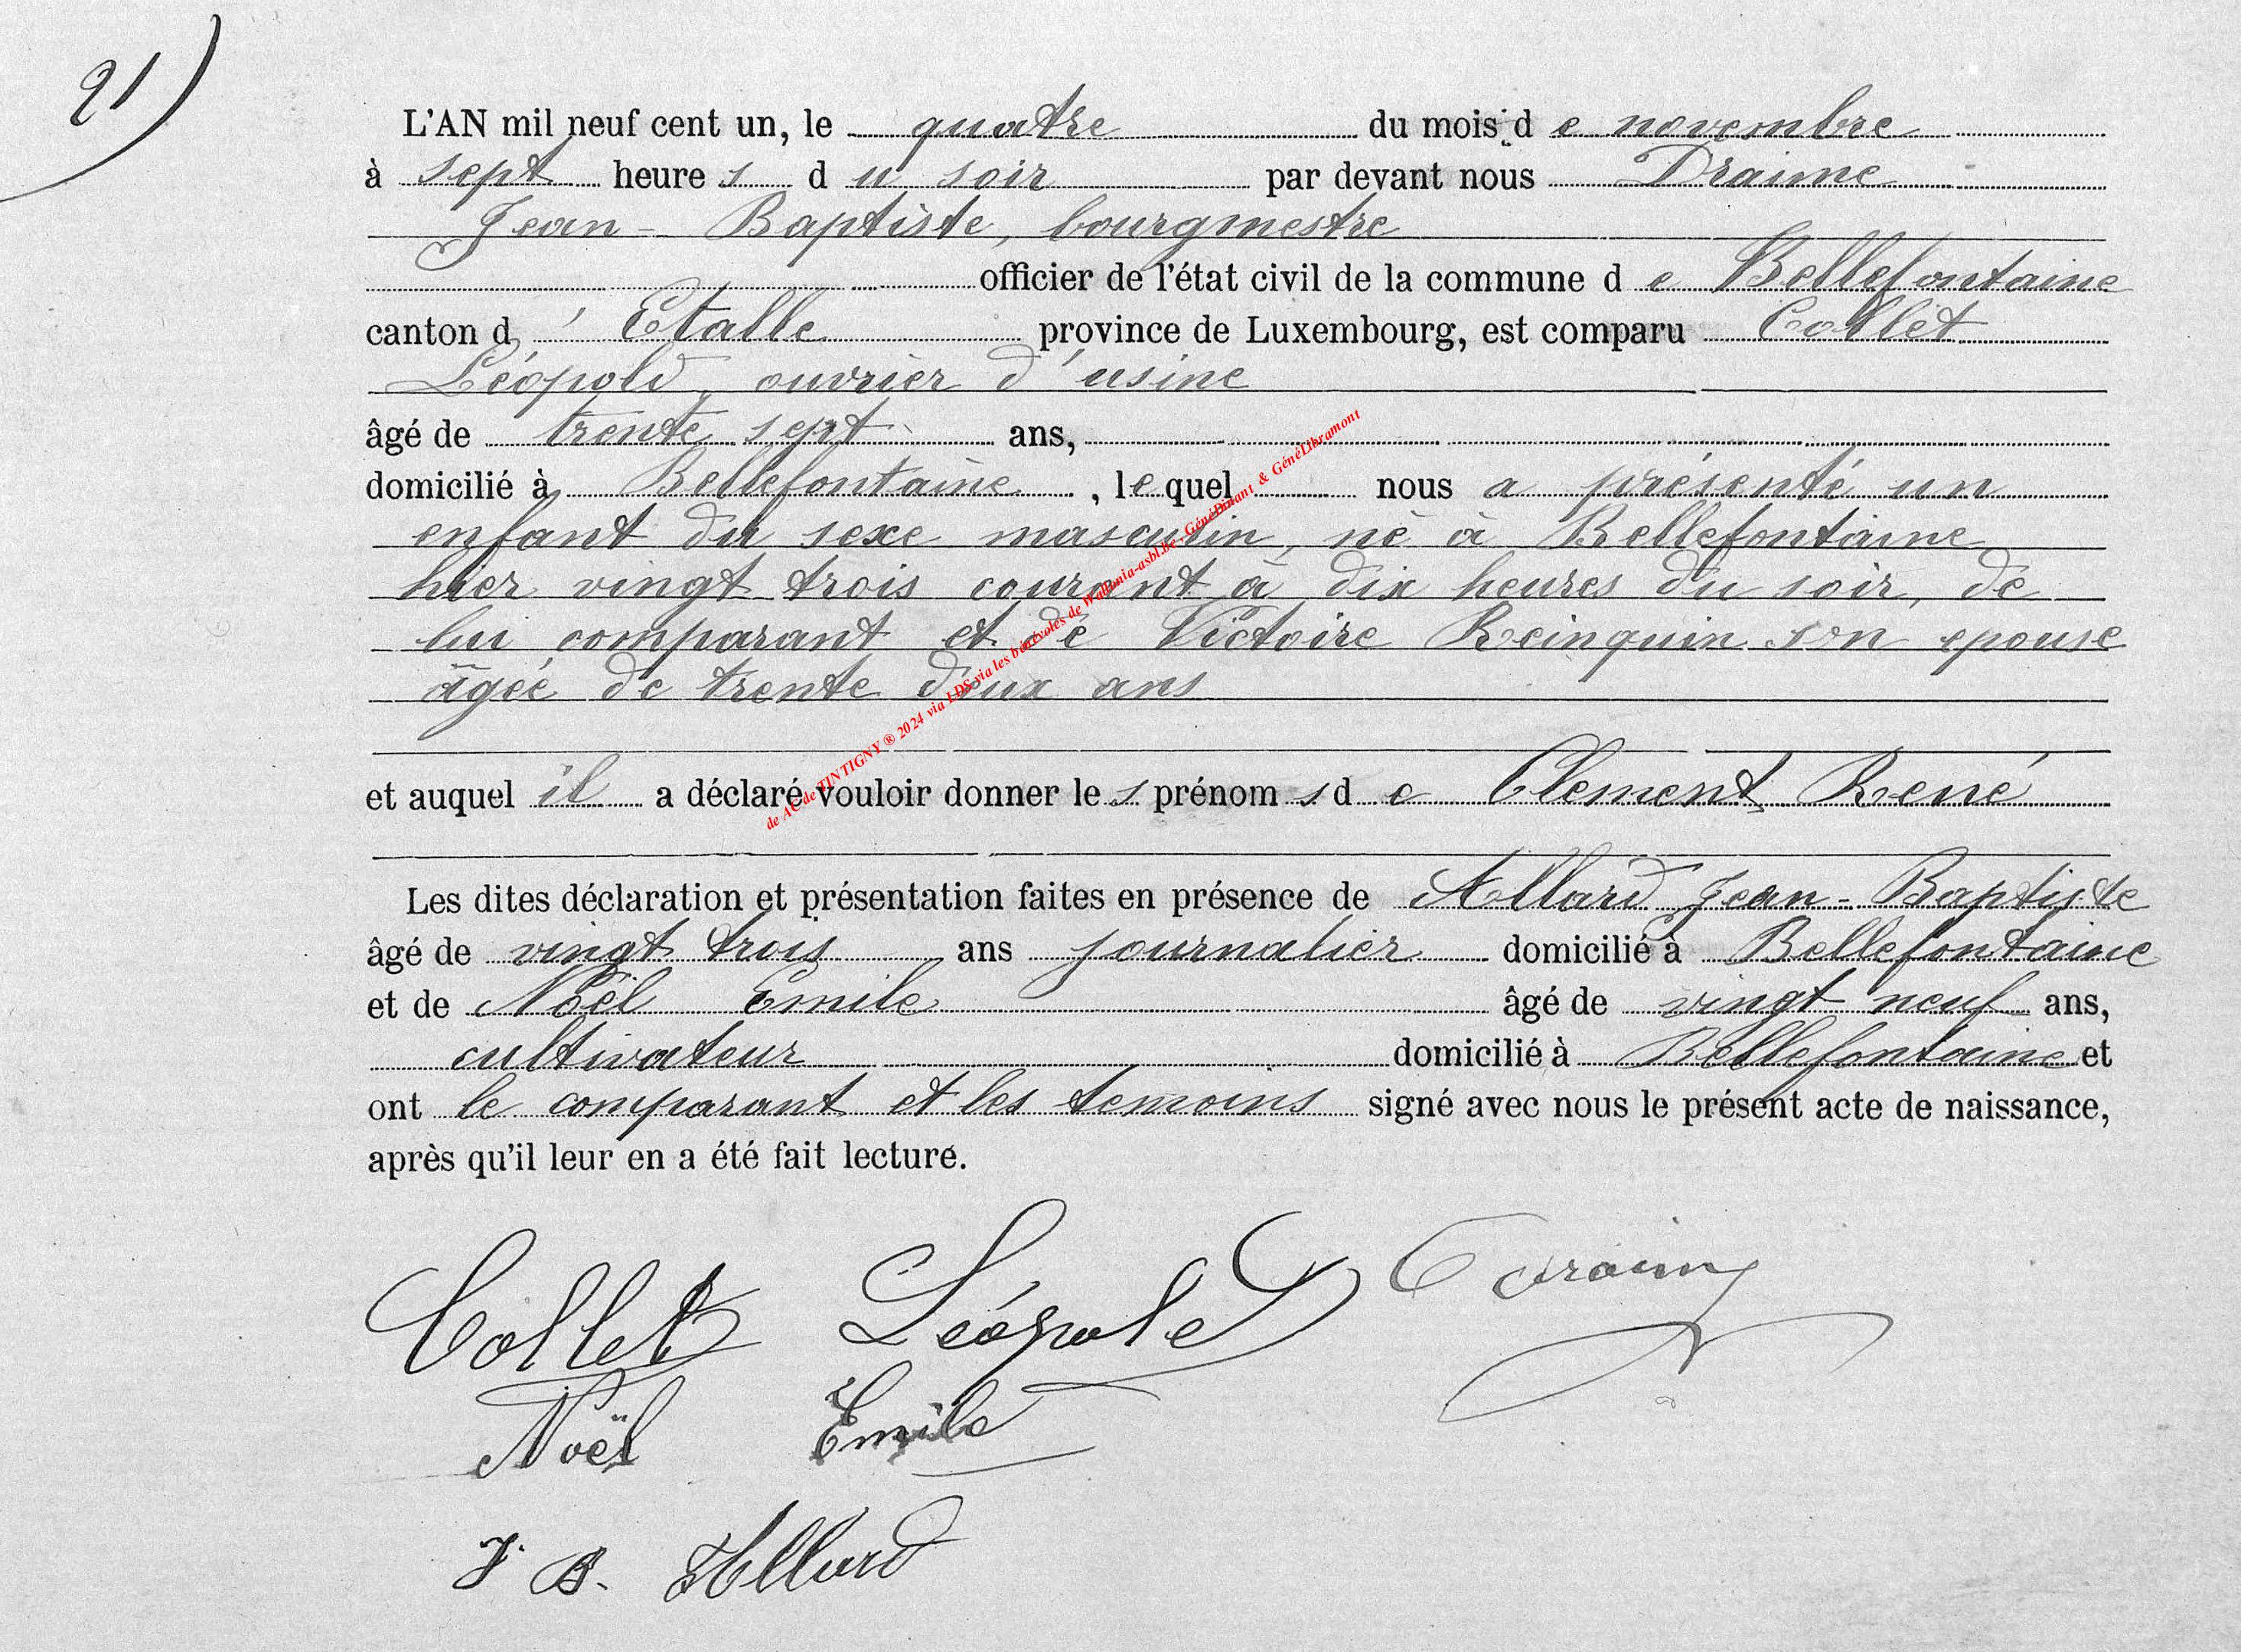 21)
L'AN mil neuf cent un, le quatre du mois d e novembre
à sept heure s d u soir par devant nous Draime
Jean-Baptiste, bourgmestre
officier de l'état civil de la commune d e Bellefontaine
canton d ' Etalle province de Luxembourg, est comparu Collet
Léopold, ouvrier d'usine
âgé de trente sept ans,
domicilié à Bellefontaine, lequel nous a présenté un
enfant du sexe masculin, né à Bellefontaine
hier vingt trois courant à dix heures du soir, de
lui comparant et de Victoire Reinquin son epouse
âgée de trente deux ans
et auquel il a déclaré vouloir donner le s prénom s d e Clement René
Les dites déclaration et présentation faites en présence de Allard Jean-Baptiste
âgé de vingt trois ans journalier domicilié à Bellefontaine
et de Noël Emile âgé de vingt neuf ans,
cultivateur domicilié à Bellefontaine et
ont le comparant et les temoins signé avec nous le présent acte de naissance,
après qu'il leur en a été fait lecture.
Collet Léopold Draime
Noël Emile
J. B. Allard
de AC de TINTIGNY ® 2024 via LDS via les bénévoles de Wallonia-asbl.be - GénéDinant & GénéLibramont